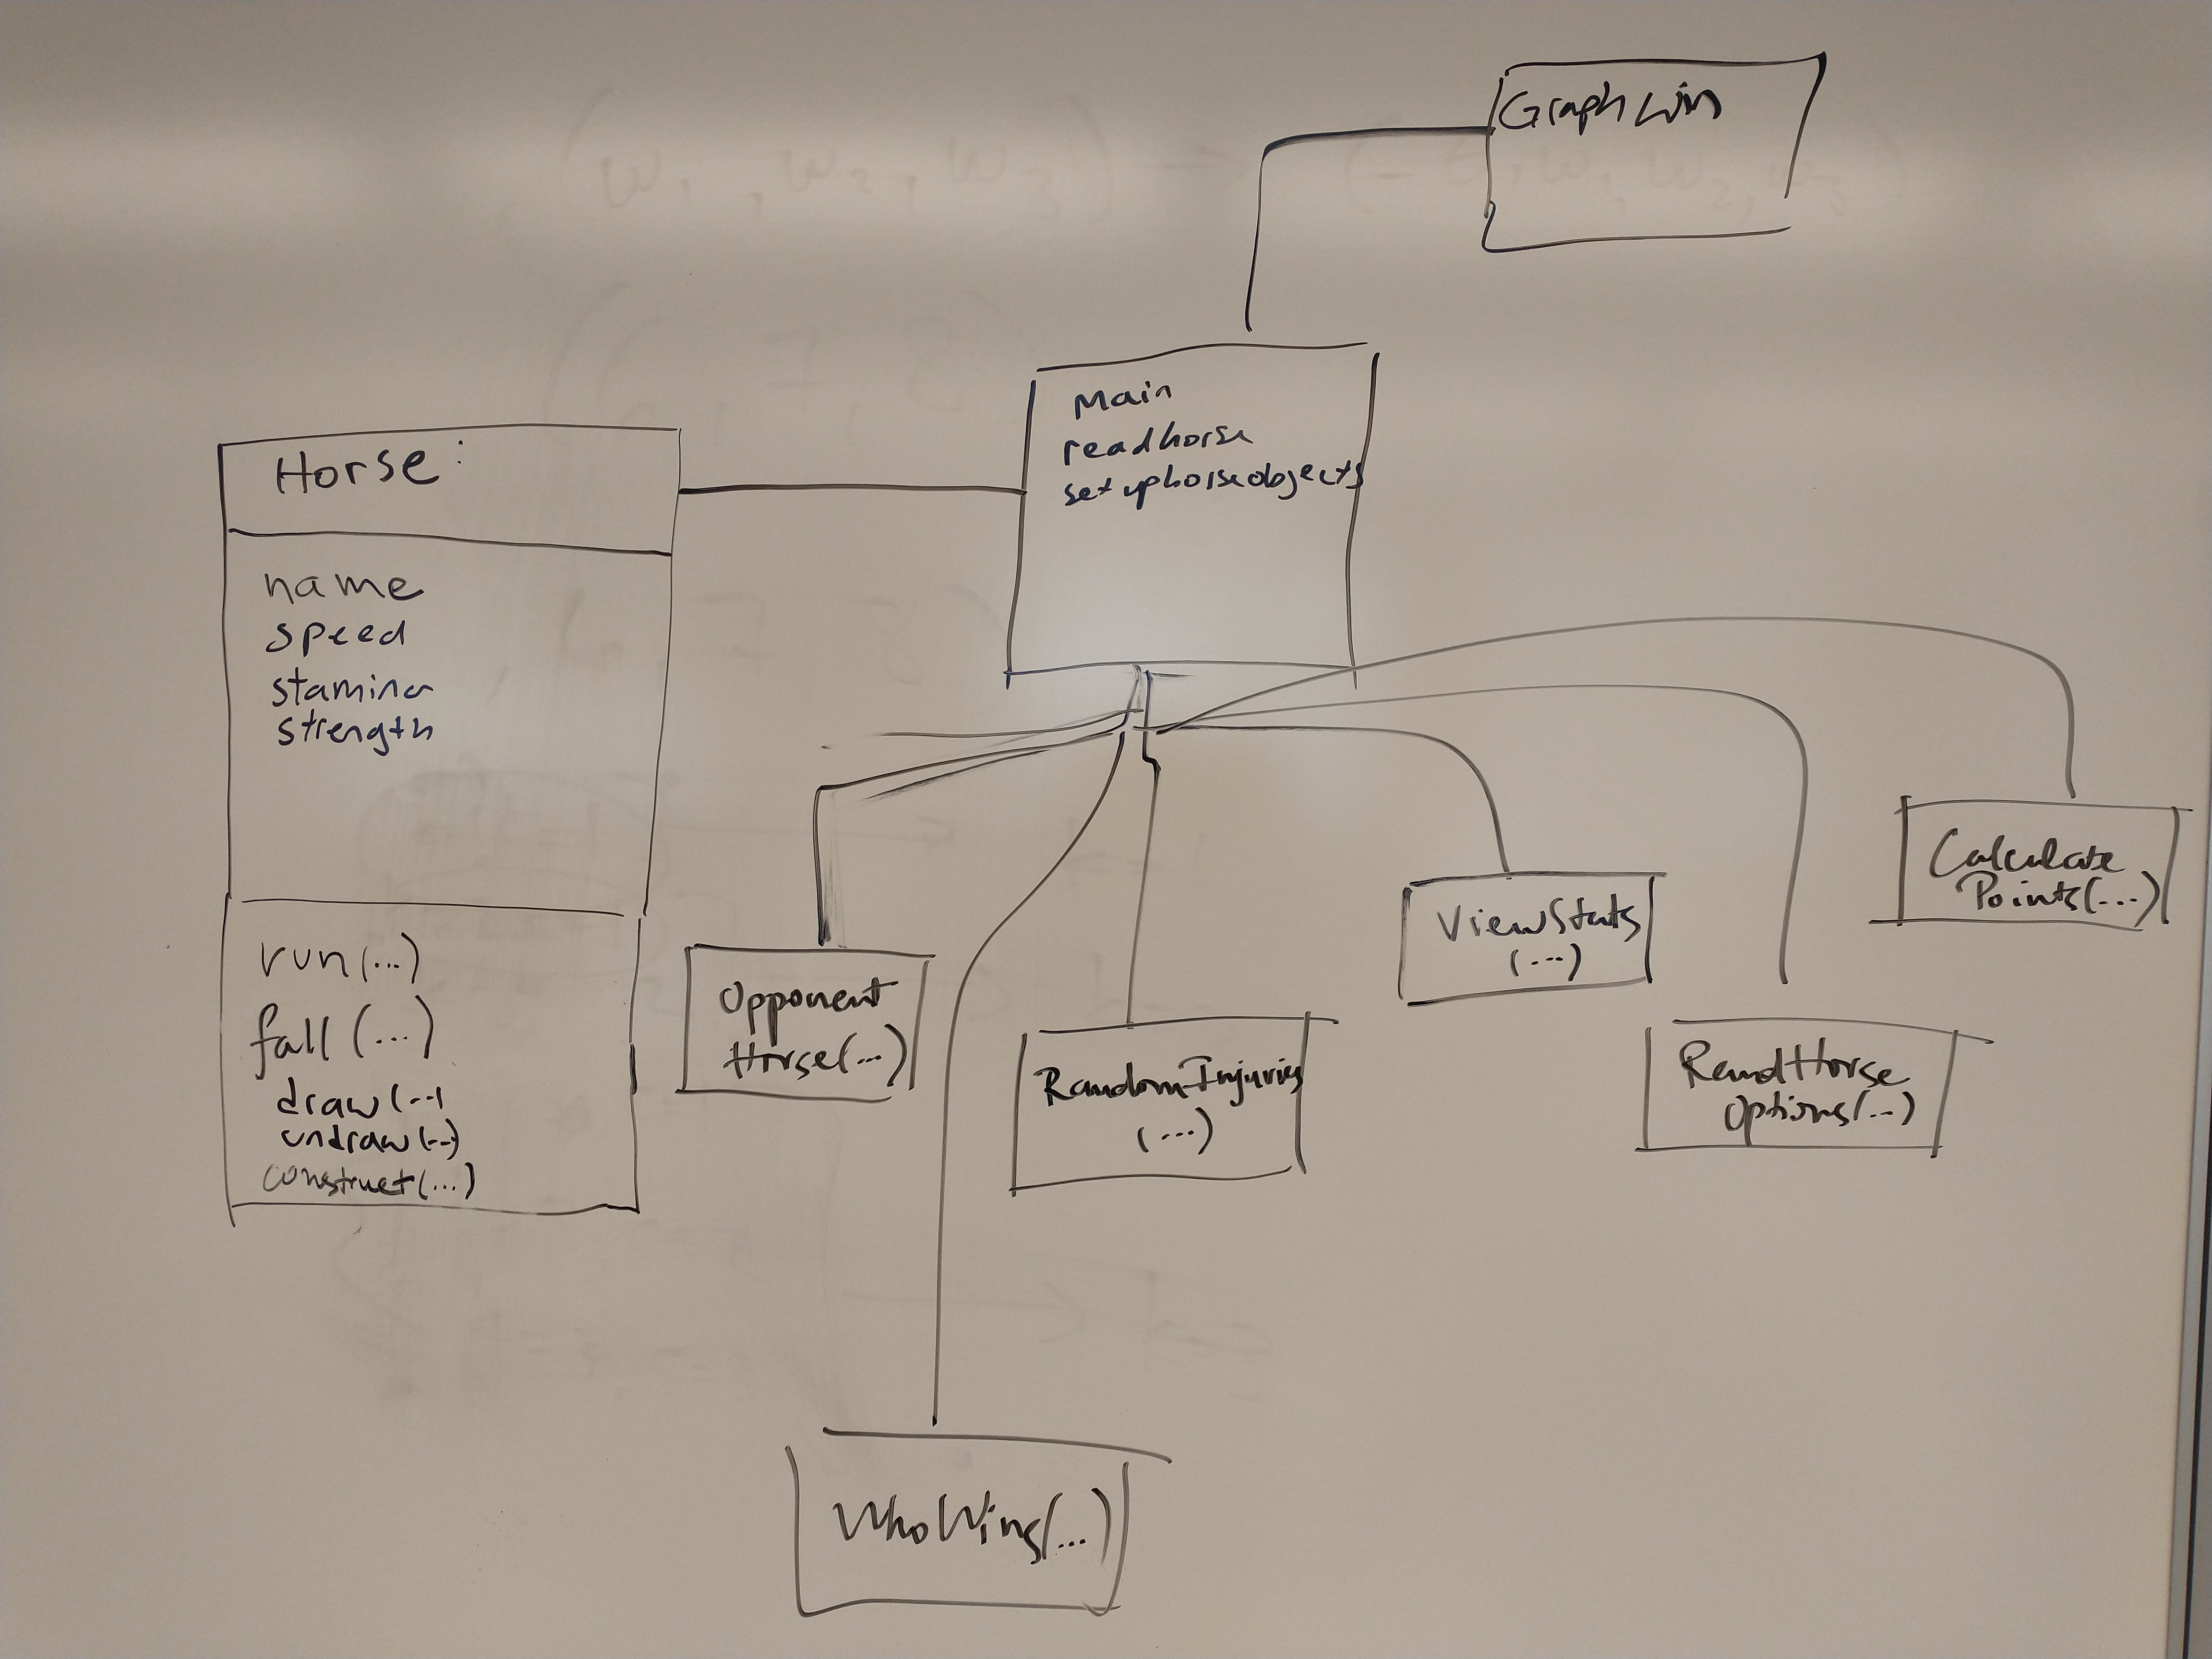 GraphWin
Main
readhorse
setuphorseobjects
Horse:
name
speed
stamina
strength
run(...)
fall (...)
draw(...
undraw(...)
construct(...)
Opponent
Horse(...)
RandomInjuries
(...)
ViewStats
(...)
Calculate
Points(...)
ReadHorse
Options(...)
WhoWins(...)